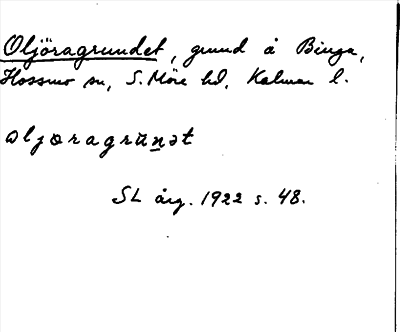 Oljöragrundet, grund å Binga,
Hossmo sn, S. Möre hd, Kalmar l.
oljøragrŭn̲ət
SL årg. 1922 s. 48.